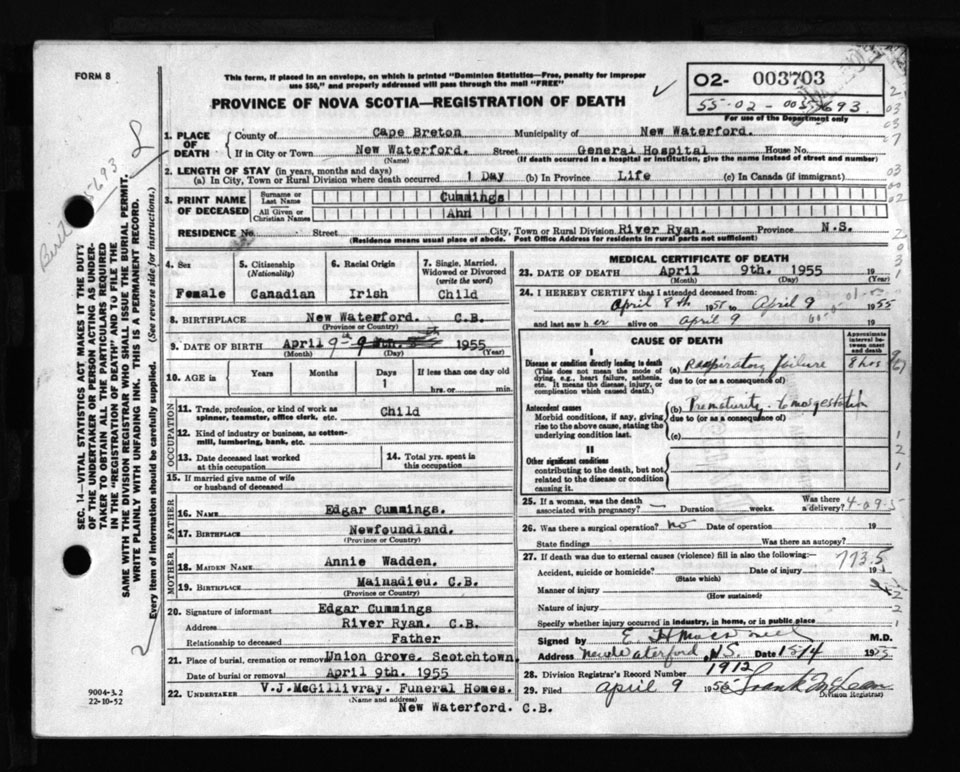 FORM 8
This form, if placed in an envelope, on which is printed "Dominion Statistics—Free, penalty for improper
use $50," and properly addressed will pass through the mail "FREE"
PROVINCE OF NOVA SCOTIA—REGISTRATION OF DEATH
02- 003703
55-02-005693.
For use of the Department only
1. PLACE OF DEATH
County of Cape Breton Municipality of New Waterford.
If in City or Town New Waterford. Street General Hospital House No.
(Name) (If death occurred in a hospital or institution, give the name instead of street and number)
2. LENGTH OF STAY (in years, months and days)
(a) In City, Town or Rural Division where death occurred 1 Day (b) In Province Life (c) In Canada (if immigrant)
3. PRINT NAME OF DECEASED
Surname or Last Name Cummings
All Given or Christian Names Ann
RESIDENCE No. Street City, Town or Rural Division River Ryan. Province N.S.
(Residence means usual place of abode. Post Office Address for residents in rural parts not sufficient)
4. Sex
Female
5. Citizenship
(Nationality)
Canadian
6. Racial Origin
Irish
7. Single, Married,
Widowed or Divorced
(write the word)
Child
8. BIRTHPLACE New Waterford. C.B.
(Province or Country)
9. DATE OF BIRTH April 9th 9 1955
(Month) (Day) (Year)
10. AGE in Years Months Days If less than one day old
1 hrs. or min.
OCCUPATION
11. Trade, profession, or kind of work as Child
spinner, teamster, office clerk, etc.
12. Kind of industry or business, as cotton-
mill, lumbering, bank, etc.
13. Date deceased last worked
at this occupation
14. Total yrs. spent in
this occupation
15. If married give name of wife
or husband of deceased
FATHER
16. NAME Edgar Cummings.
17. BIRTHPLACE Newfoundland.
(Province or Country)
MOTHER
18. MAIDEN NAME Annie Wadden.
19. BIRTHPLACE Mainadieu. C.B.
(Province or Country)
20. Signature of informant Edgar Cummings
Address River Ryan. C.B.
Relationship to deceased Father
21. Place of burial, cremation or removal Union Grove. Scotchtown.
Date of burial or removal April 9th. 1955
22. UNDERTAKER V.J.McGillivray. Funeral Homes.
(Name and address)
New Waterford. C.B.
MEDICAL CERTIFICATE OF DEATH
23. DATE OF DEATH April 9th. 1955 19
(Month) (Day) (Year)
24. I HEREBY CERTIFY that I attended deceased from:
April 8th 1955 to April 9 1955
and last saw her alive on April 9 19
CAUSE OF DEATH
Approximate
interval between
onset
and death
I
Disease or condition directly leading to death
(This does not mean the mode of
dying, e.g., heart failure, asthenia,
etc. It means the disease, injury, or
complication which caused death.)
(a) Respiratory failure 8 hrs
due to (or as a consequence of)
Antecedent causes
Morbid conditions, if any, giving
rise to the above cause, stating the
underlying condition last.
(b) Prematurity. 6 mos gestation
due to (or as a consequence of)
(c)
II
Other significant conditions
contributing to the death, but not
related to the disease or condition
causing it.
25. If a woman, was the death
associated with pregnancy? — Duration weeks. Was there
a delivery?
26. Was there a surgical operation? no Date of operation 19
State findings Was there an autopsy?
27. If death was due to external causes (violence) fill in also the following:— 773.5
Accident, suicide or homicide? Date of injury 19
(State which)
Manner of injury
(How sustained)
Nature of injury
Specify whether injury occurred in industry, in home, or in public place
Signed by M.D.
Address New Waterford, N.S. Date 15/4 19
28. Division Registrar's Record Number 1912
29. Filed April 9 1955 Frank McLean
(Division Registrar)
SEC. 14—VITAL STATISTICS ACT MAKES IT THE DUTY
OF THE UNDERTAKER OR PERSON ACTING AS UNDER-
TAKER TO OBTAIN ALL THE PARTICULARS REQUIRED
IN THE "REGISTRATION OF DEATH" AND TO FILE THE
SAME WITH THE DIVISION REGISTRAR WHO SHALL ISSUE THE BURIAL PERMIT.
WRITE PLAINLY WITH UNFADING INK. THIS IS A PERMANENT RECORD.
Every item of information should be carefully supplied. (See reverse side for instructions.)
9004-3.2
22-10-52